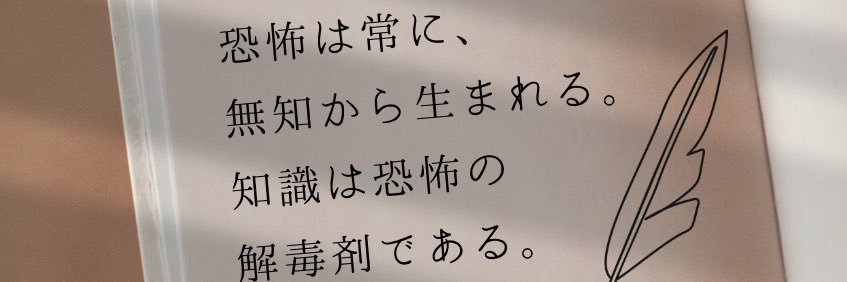 恐怖は常に、
無知から生まれる。
知識は恐怖の
解毒剤である。